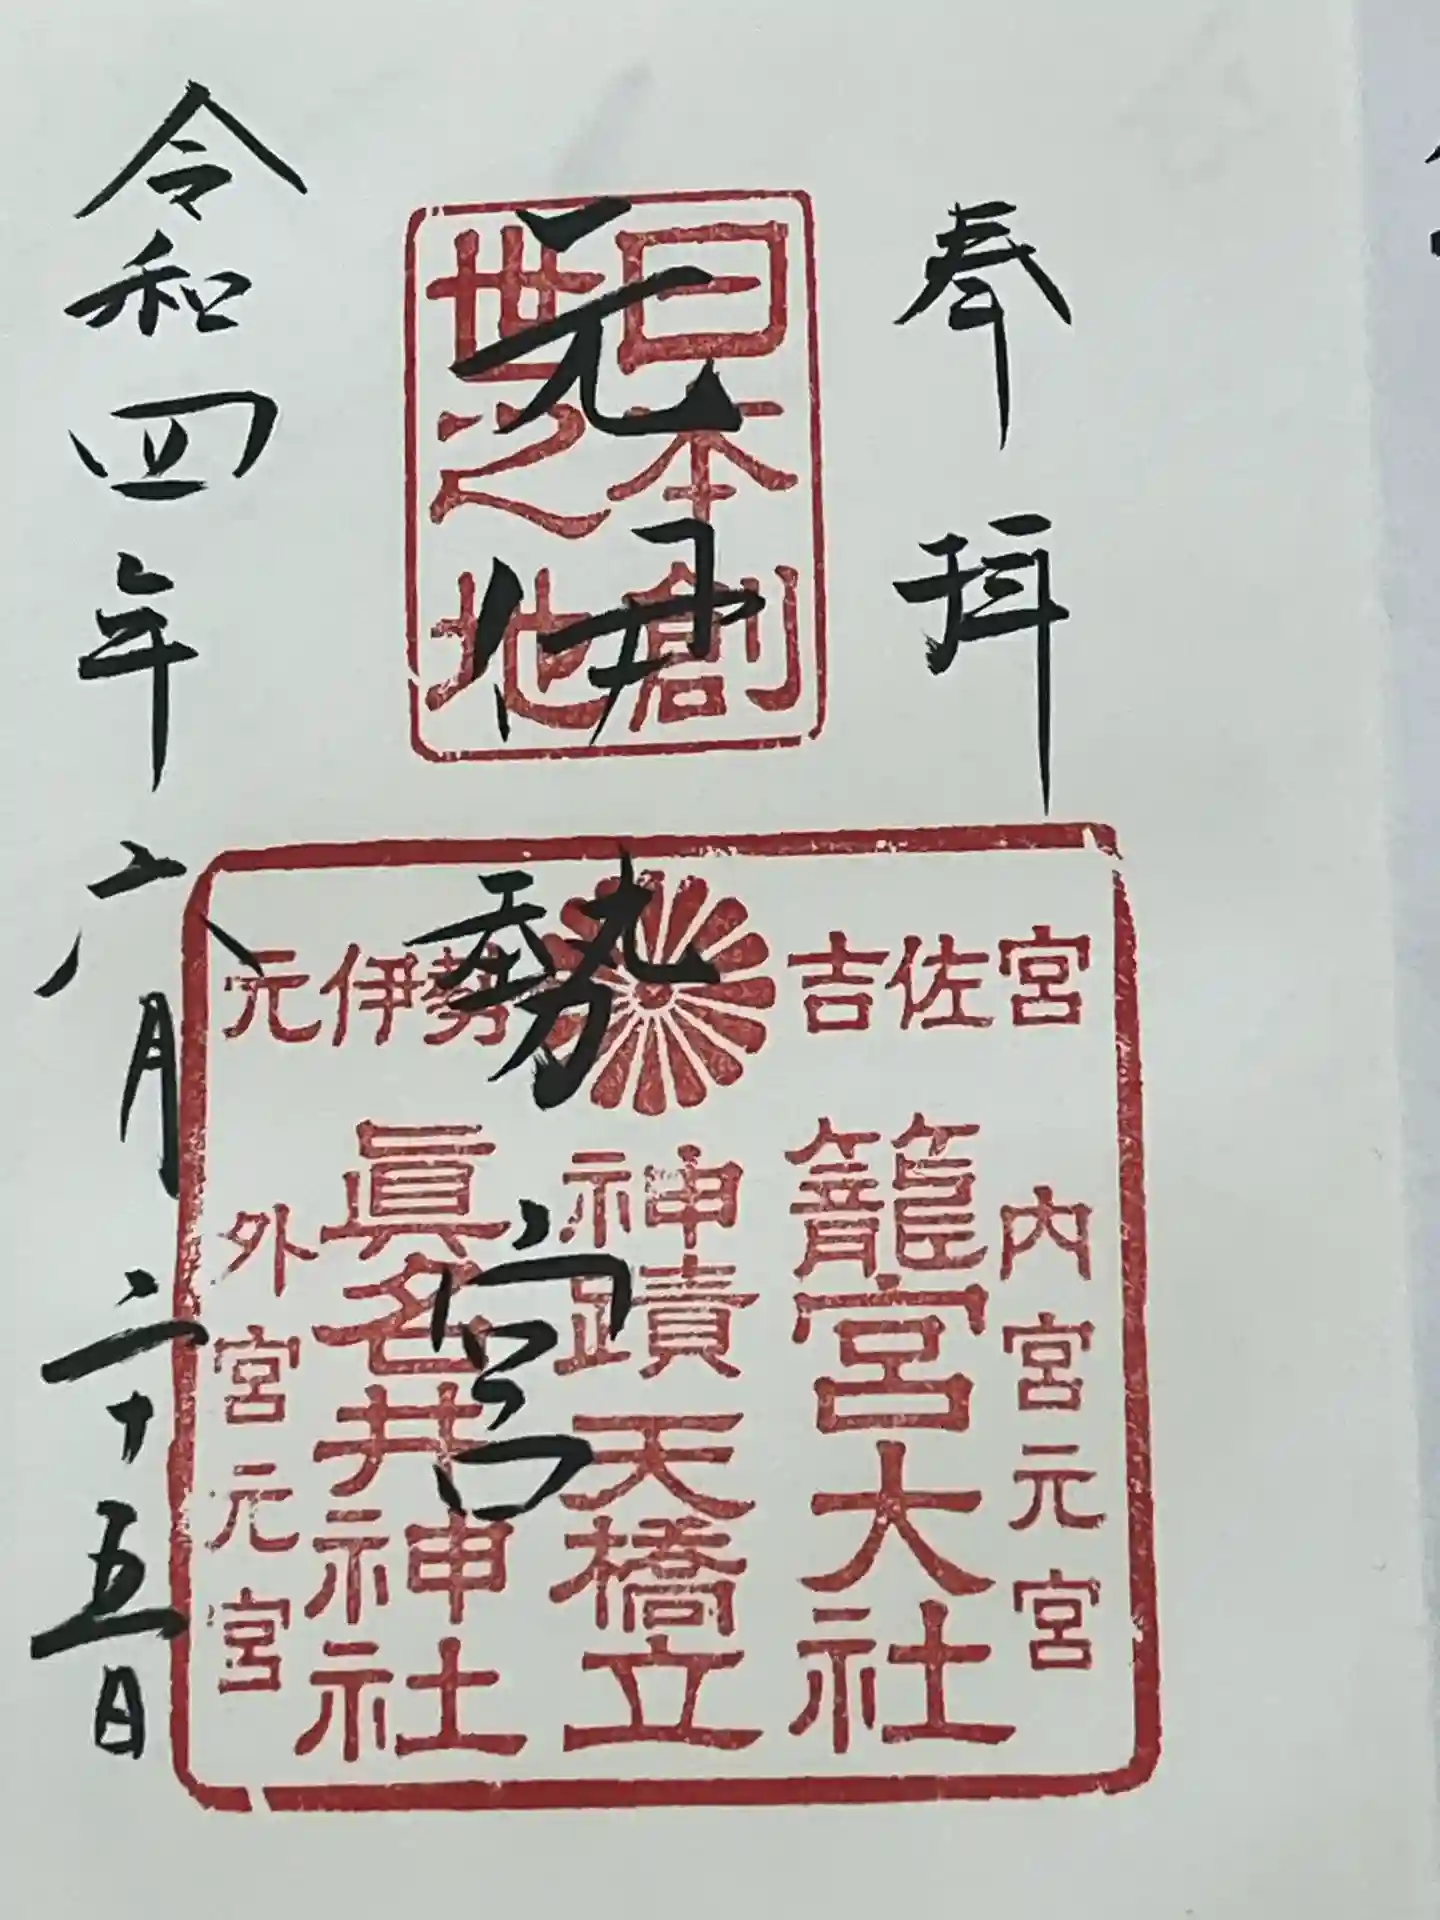 奉拝
日本創
世之地
元伊勢宮
元伊勢
吉佐宮
内宮元宮
籠宮大社
神蹟天橋立
眞名井神社
外宮元宮
令和四年六月二十五日